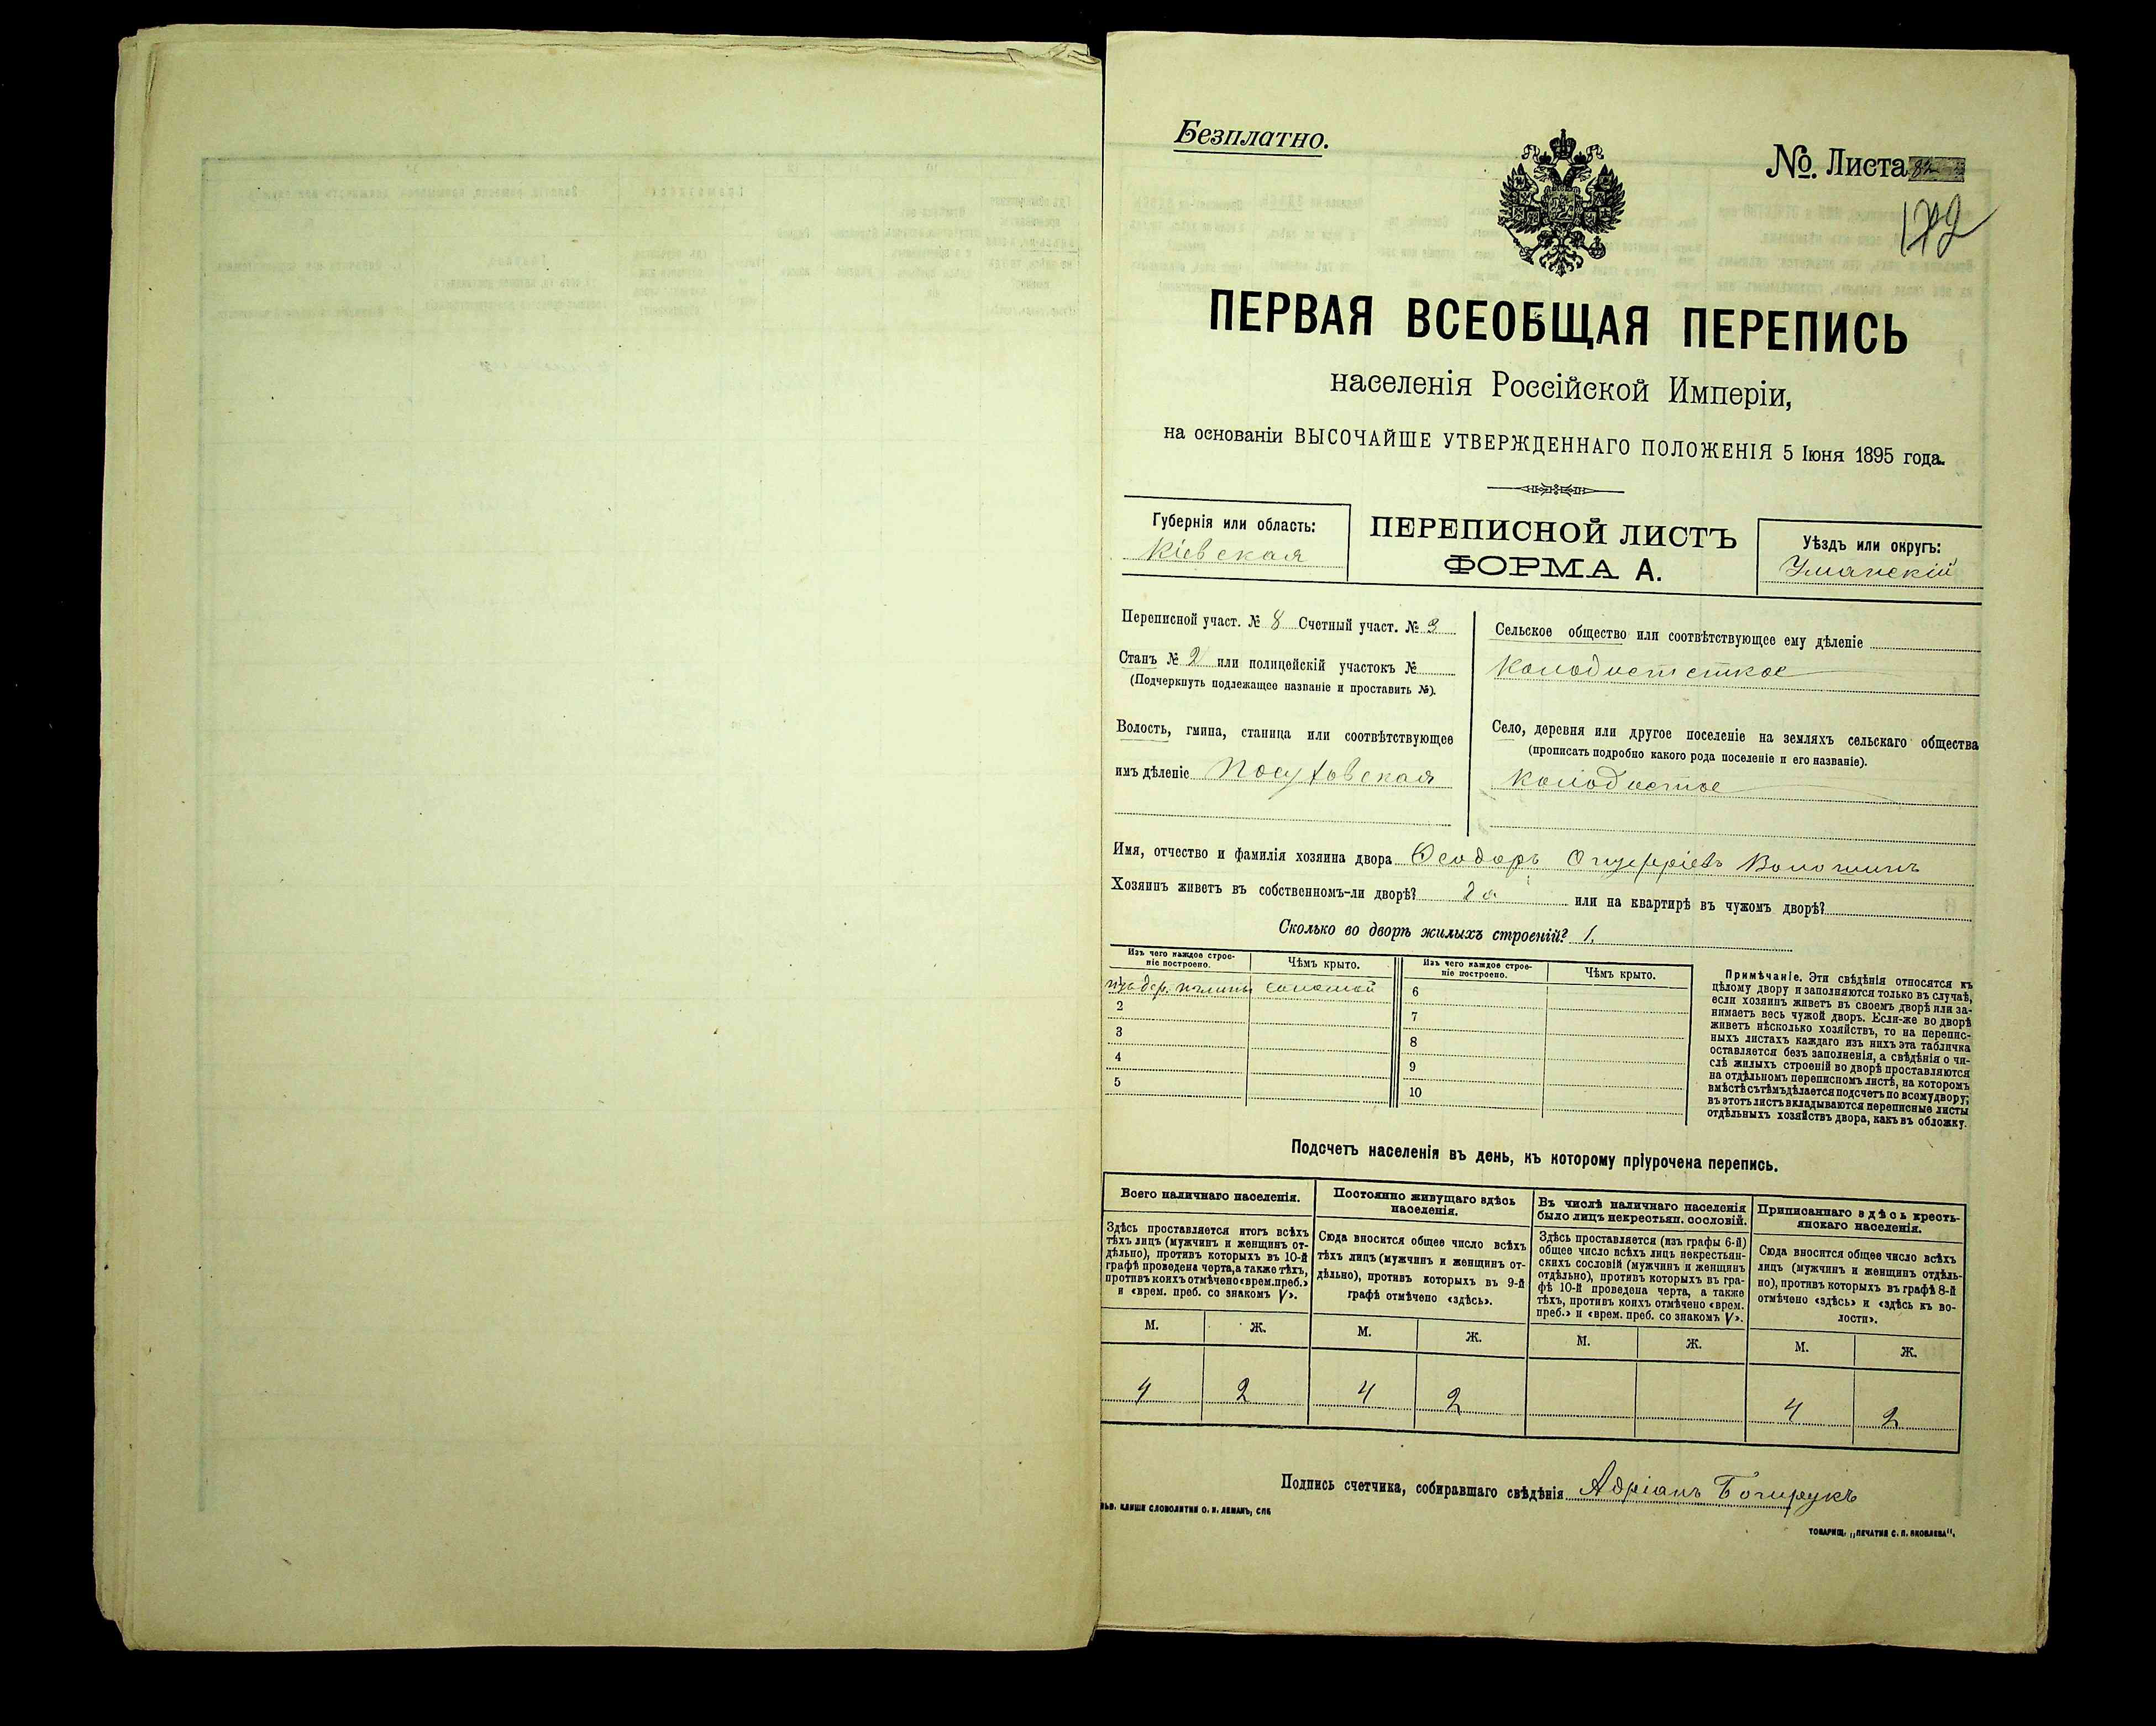 Безплатно.
№. Листа
172
ПЕРВАЯ ВСЕОБЩАЯ ПЕРЕПИСЬ
населенія Россійской Имперіи,
на основаніи ВЫСОЧАЙШЕ УТВЕРЖДЕННАГО ПОЛОЖЕНІЯ 5 Іюня 1895 года.
Губернія или область:
Кіевская
ПЕРЕПИСНОЙ ЛИСТЪ
ФОРМА А.
Уѣздъ или округъ:
Уманскій
Переписной участ. № 8 Счетный участ. № 3
Станъ № 2 или полицейскій участокъ №
(Подчеркнуть подлежащее названіе и проставить №).
Волость, гмина, станица или соотвѣтствующее
имъ дѣленіе Посуховская
Сельское общество или соотвѣтствующее ему дѣленіе
Колодистское
Село, деревня или другое поселеніе на земляхъ сельскаго общества
(прописать подробно какого рода поселеніе и его названіе).
Колодистое
Имя, отчество и фамилія хозяина двора Ѳеодоръ Онуфріевъ Волошинъ
Хозяинъ живетъ въ собственномъ-ли дворѣ? да или на квартирѣ въ чужомъ дворѣ?
Сколько во дворѣ жилыхъ строеній? 1.
Изъ чего каждое строе-
ніе построено.
Чѣмъ крыто.
изъ дер. и глины соломой
2
3
4
5
Изъ чего каждое строе-
ніе построено.
Чѣмъ крыто.
6
7
8
9
10
Примѣчаніе. Эти свѣдѣнія относятся къ
цѣлому двору и заполняются только въ случаѣ,
если хозяинъ живетъ въ своемъ дворѣ или за-
нимаетъ весь чужой дворъ. Если-же во дворѣ
живетъ нѣсколько хозяйствъ, то на перепис-
ныхъ листахъ каждаго изъ нихъ эта табличка
оставляется безъ заполненія, а свѣдѣнія о чи-
слѣ жилыхъ строеній во дворѣ проставляются
на отдѣльномъ переписномъ листѣ, на которомъ
вмѣстѣ съ тѣмъ дѣлается подсчетъ по всему двору;
въ этотъ листъ вкладываются переписные листы
отдѣльныхъ хозяйствъ двора, какъ въ обложку.
Подсчетъ населенія въ день, къ которому пріурочена перепись.
Всего наличнаго населенія.
Здѣсь проставляется итогъ всѣхъ
тѣхъ лицъ (мужчинъ и женщинъ от-
дѣльно), противъ которыхъ въ 10-й
графѣ проведена черта, а также тѣхъ,
противъ коихъ отмѣчено «врем. преб.»
и «врем. преб. со знакомъ V».
М. Ж.
4 2
Постоянно живущаго здѣсь
населенія.
Сюда вносится общее число всѣхъ
тѣхъ лицъ (мужчинъ и женщинъ от-
дѣльно), противъ которыхъ въ 9-й
графѣ отмѣчено «здѣсь».
М. Ж.
4 2
Въ числѣ наличнаго населенія
было лицъ некрестьян. сословій.
Здѣсь проставляется (изъ графы 6-й)
общее число всѣхъ лицъ некрестьян-
скихъ сословій (мужчинъ и женщинъ
отдѣльно), противъ которыхъ въ гра-
фѣ 10-й проведена черта, а также
тѣхъ, противъ коихъ отмѣчено «врем.
преб.» и «врем. преб. со знакомъ V».
М. Ж.
Приписаннаго здѣсь кресть-
янскаго населенія.
Сюда вносится общее число всѣхъ
лицъ (мужчинъ и женщинъ отдѣль-
но), противъ которыхъ въ графѣ 8-й
отмѣчено «здѣсь» и «здѣсь къ во-
лости».
М. Ж.
4 2
Подпись счетчика, собиравшаго свѣдѣнія Адріанъ
КЛИШЕ СЛОВОЛИТНИ О. И. ЛЕМАНЪ, СПБ
ТОВАРИЩ. „ПЕЧАТНЯ С. П. ЯКОВЛЕВА".